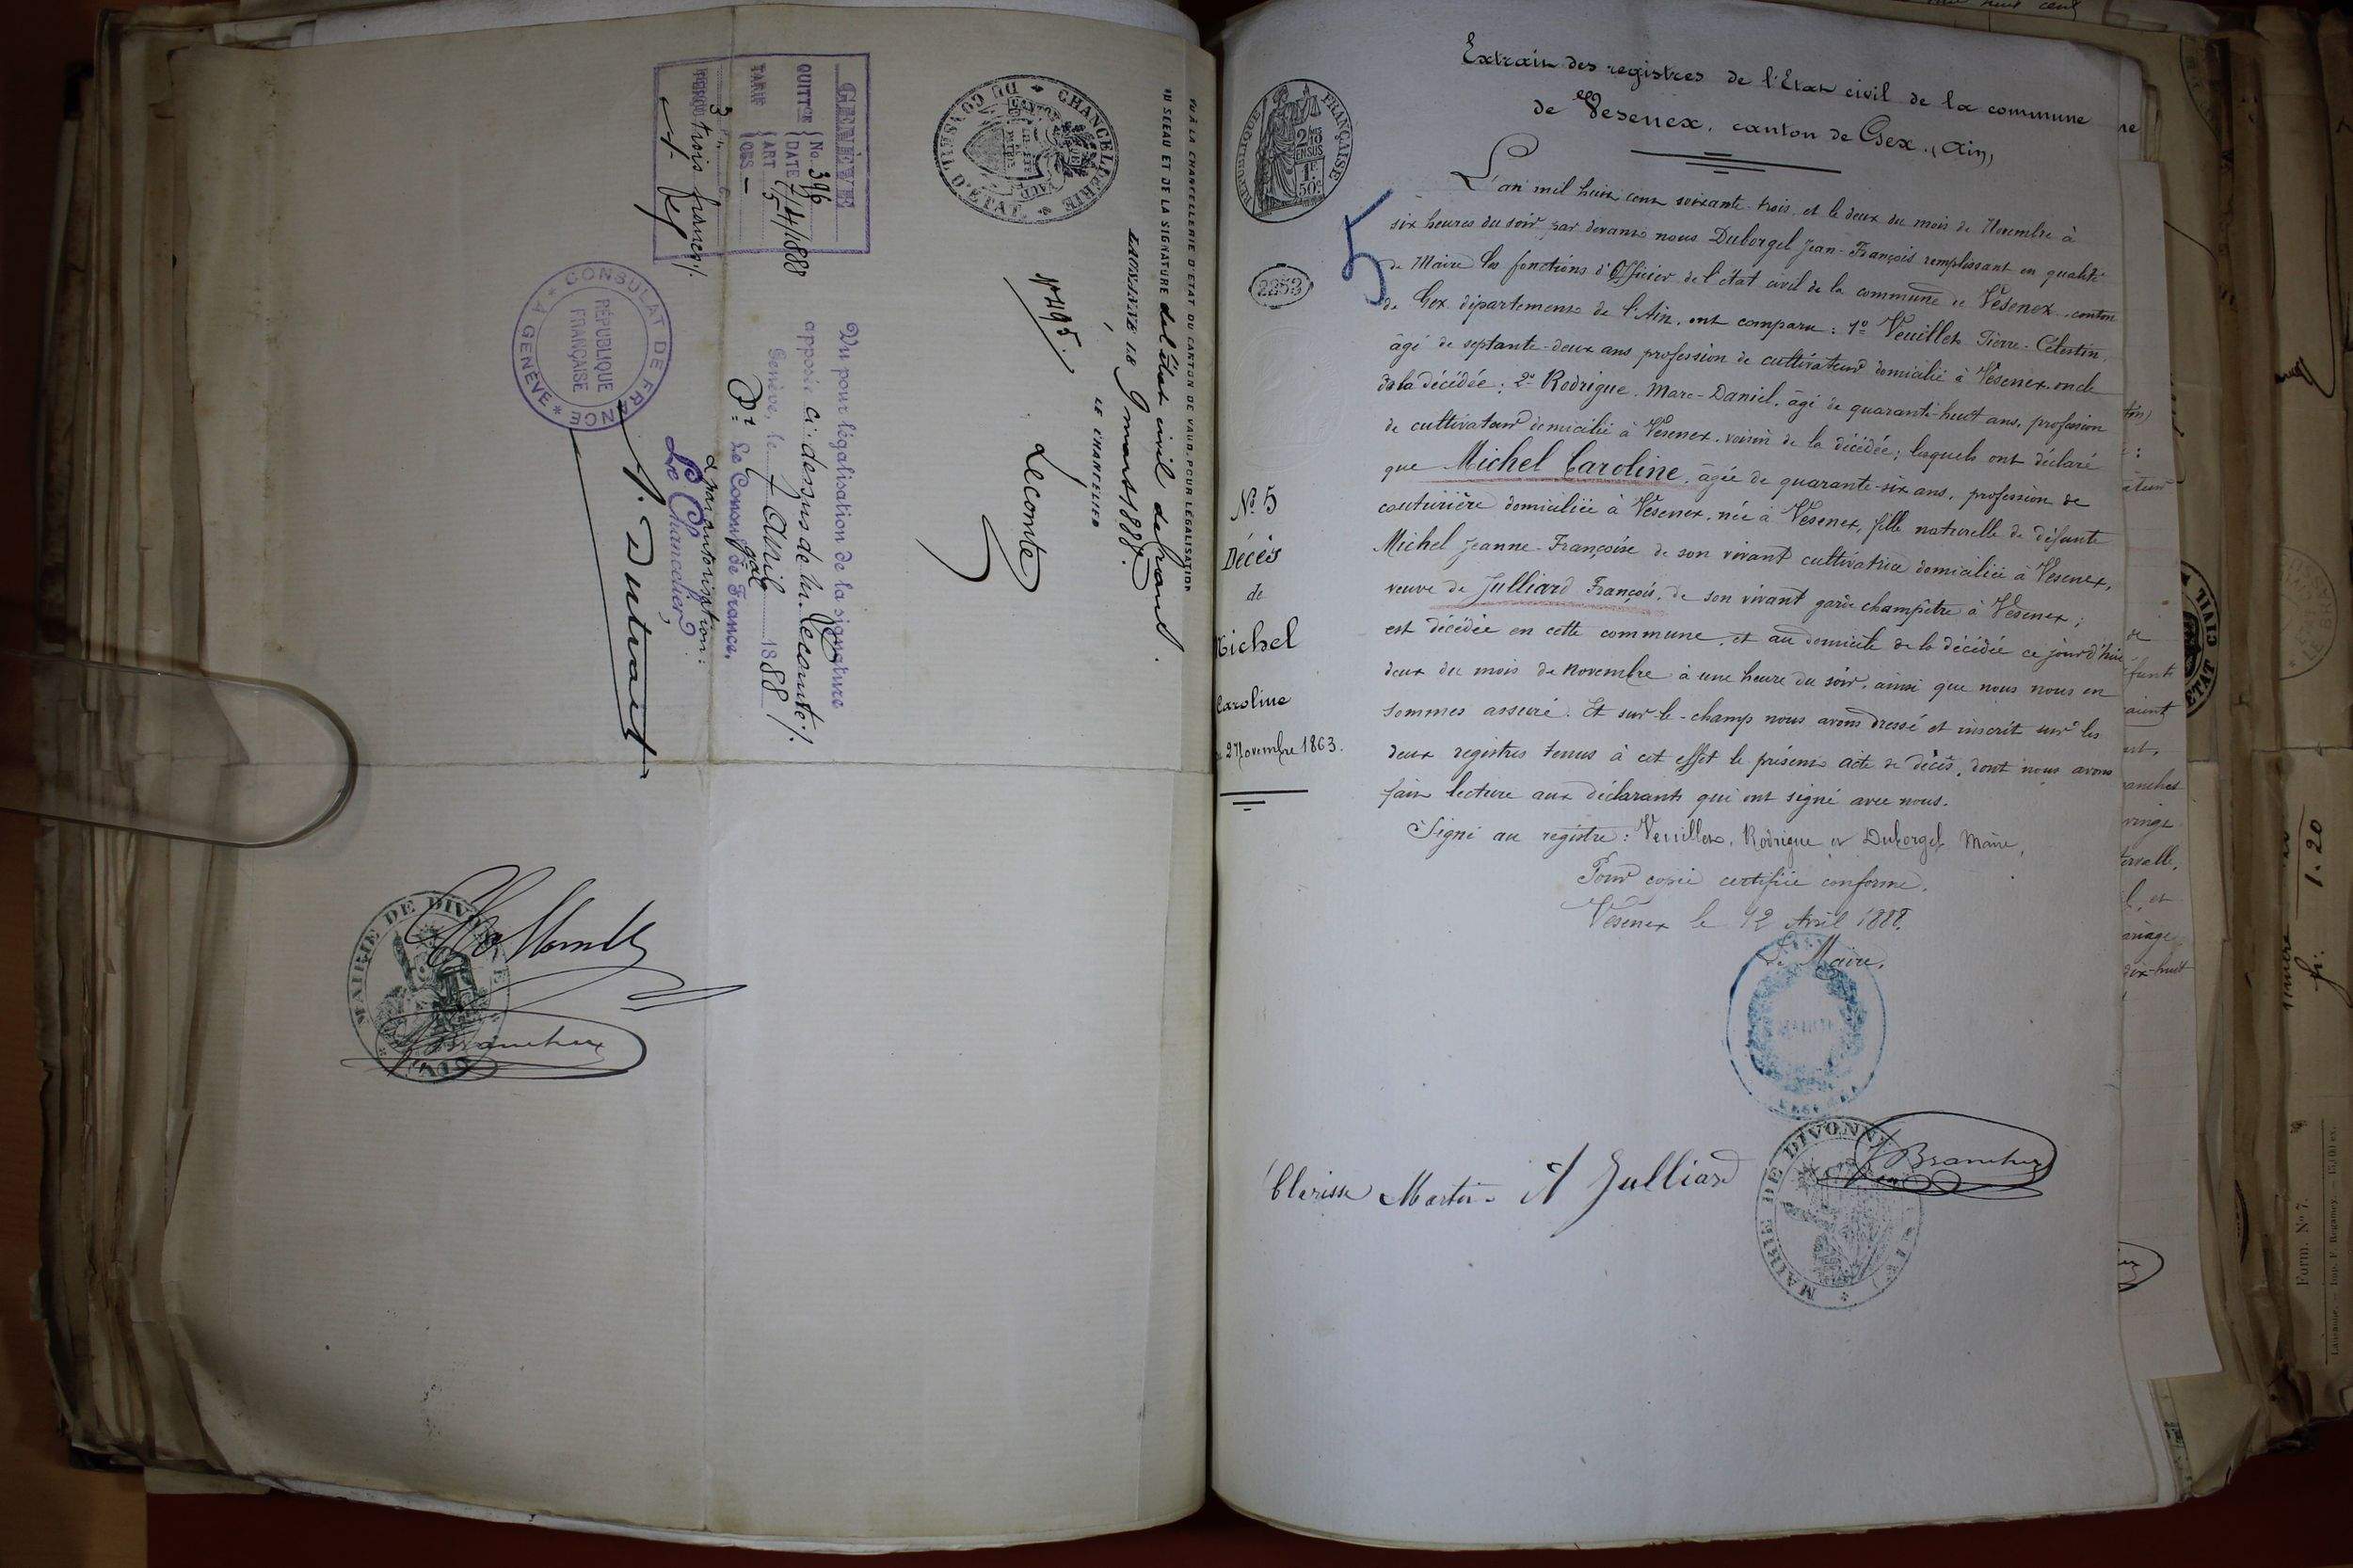 VU À LA CHANCELLERIE D'ÉTAT DU CANTON DE VAUD, POUR LÉGALISATION
DU SCEAU ET DE LA SIGNATURE de l'état civil
LAUSANNE, LE 9 mars 1888.
LE CHANCELIER
Lecomte
N° 495.
CHANCELLERIE DU CONSEIL D'ÉTAT
CANTON DE VAUD
GENÈVE
QUITTCE
No. 396
DATE 7/4/1888
TARIF
ART 5
OBS. –
trois francs
Vu pour légalisation de la signature
apposée ci-dessus de M. Lecomte ./.
Genève, le 7 Avril 1888 /.
Pr. Le Consul gal de France,
Par autorisation:
Le Chancelier
CONSULAT DE FRANCE À GENÈVE
RÉPUBLIQUE FRANÇAISE
MAIRIE DE DIVONNE
Extrait des registres de l'Etat civil de la commune
de Vesenex, canton de Gex. (Ain)
RÉPUBLIQUE FRANÇAISE
2/10 EN SUS
1F 50c
2253
5
L'an mil huit cent soixante-trois, et le deux du mois de Novembre à
six heures du soir, par devant nous Duborgel Jean-François remplissant en qualité
de Maire les fonctions d'Officier de l'état civil de la commune de Vésenex, canton
de Gex département de l'Ain, ont comparu: 1º Veuillet Pierre-Célestin,
âgé de septante-deux ans profession de cultivateur domicilié à Vésenex, oncle
de la décédée; 2º Rodrigue, Marc-Daniel, âgé de quarante-huit ans, profession
de cultivateur domicilié à Vesenex, voisin de la décédée; lesquels ont déclaré
que Michel Caroline, âgée de quarante-six ans, profession de
couturière domiciliée à Vesenex, née à Vesenex, fille naturelle de défunte
Michel Jeanne-Françoise de son vivant cultivatrice domiciliée à Vesenex,
veuve de Julliard François, de son vivant garde champêtre à Vésenex;
est décédée en cette commune, et au domicile de la décédée ce jourd'hui
deux du mois de Novembre à une heure du soir, ainsi que nous nous en
sommes assuré. Et sur-le-champ nous avons dressé et inscrit sur les
deux registres tenus à cet effet le présent acte de décès, dont nous avons
fait lecture aux déclarants qui ont signé avec nous.
Signé au registre: Veuillet, Rodrigue et Duborgel Maire,
Pour copie certifiée conforme,
Vésenex le 12 Avril 1888.
Le Maire,
N° 5
Décès
de
Michel
Caroline
2 Novembre 1863.
MAIRIE
MAIRIE DE DIVONNE
Clerisse Martin A Julliard
1.20
Form. N° 7.